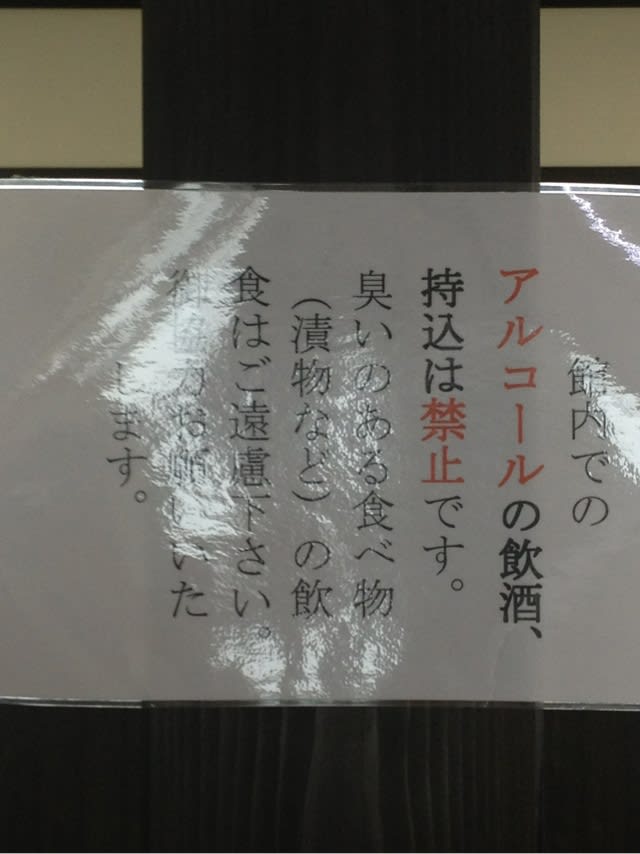 館内での
アルコールの飲酒、
持込は禁止です。
臭いのある食べ物
（漬物など）の飲
食はご遠慮下さい。
御協力お願いいた
します。